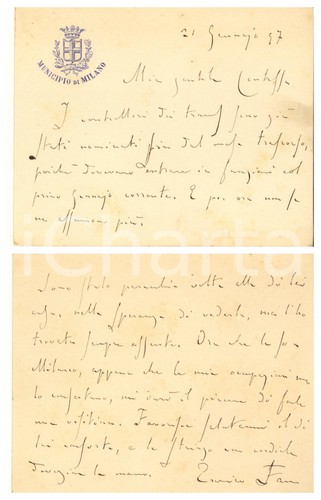 MUNICIPIO DI MILANO
21 Gennajo 97
Mia gentile Contessa
I controllori dei tram sono già
stati nominati fin dal mese trascorso,
poichè dovevano entrare in funzioni col
primo Gennajo corrente. E poi ora non se
ne più.
iCharta
Sono stato parecchie volte alla di lei
casa, nella speranza di vederla, ma l'ho
trovata sempre assente. Ora che la so a
Milano, appena che le mie occupazioni me
lo consentano, mi darò il piacere di farle
una visitina. Favorisca salutarmi il di
lei consorte, e le stringo con cordiale
devozione la mano.
Enrico